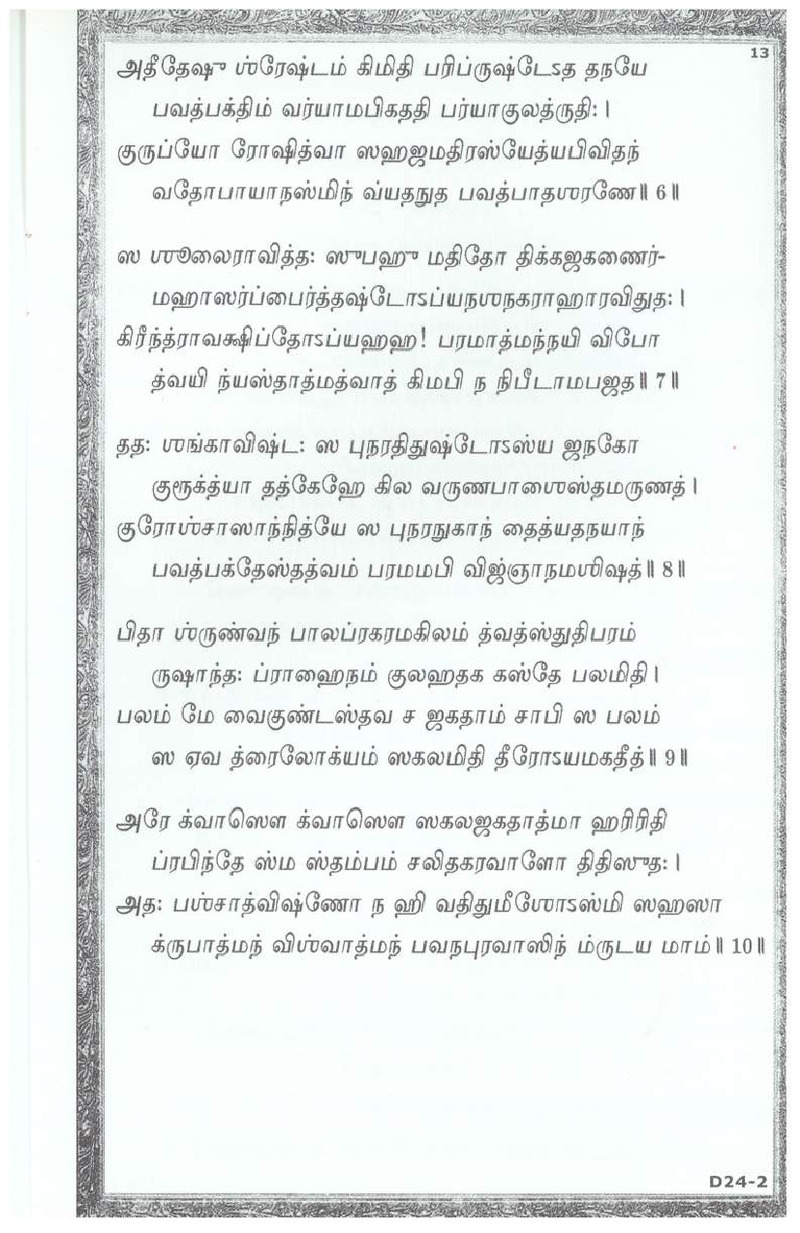 13
அதீதேஷு ஶ்ரேஷ்டம் கிமிதி பரிப்ருஷ்டேऽத தநயே
பவத்பக்திம் வர்யாமபிகததி பர்யாகுலத்ருதி: |
குருப்யோ ரோஷித்வா ஸஹஜமதிரஸ்யேத்யபிவிதந்
வதோபாயாநஸ்மிந் வ்யதநுத பவத்பாதஶரணே॥ 6॥
ஸ ஶூலைராவித்த: ஸுபஹு மதிதோ திக்கஜகணைர்-
மஹாஸர்ப்பைர்த்தஷ்டோऽப்யநஶநகராஹாரவிதுத: |
கிரீந்த்ராவக்ஷிப்தோऽப்யஹஹ! பரமாத்மந்நயி விபோ
த்வயி ந்யஸ்தாத்மத்வாத் கிமபி ந நிபீடாமபஜத॥ 7॥
தத: ஶங்காவிஷ்ட: ஸ புநரதிதுஷ்டோऽஸ்ய ஜநகோ
குரூக்த்யா தத்கேஹே கில வருணபாஶைஸ்தமருணத் |
குரோஶ்சாஸாந்நித்யே ஸ புநரநுகாந் தைத்யதநயாந்
பவத்பக்தேஸ்தத்வம் பரமமபி விஜ்ஞாநமஶிஷத்॥ 8॥
பிதா ஶ்ருண்வந் பாலப்ரகரமகிலம் த்வத்ஸ்துதிபரம்
ருஷாந்த: ப்ராஹைநம் குலஹதக கஸ்தே பலமிதி |
பலம் மே வைகுண்டஸ்தவ ச ஜகதாம் சாபி ஸ பலம்
ஸ ஏவ த்ரைலோக்யம் ஸகலமிதி தீரோऽயமகதீத்॥ 9॥
அரே க்வாஸௌ க்வாஸௌ ஸகலஜகதாத்மா ஹரிரிதி
ப்ரபிந்தே ஸ்ம ஸ்தம்பம் சலிதகரவாளோ திதிஸுத: |
அத: பஶ்சாத்விஷ்ணோ ந ஹி வதிதுமீஶோऽஸ்மி ஸஹஸா
க்ருபாத்மந் விஶ்வாத்மந் பவநபுரவாஸிந் ம்ருடய மாம்॥ 10॥
D24-2